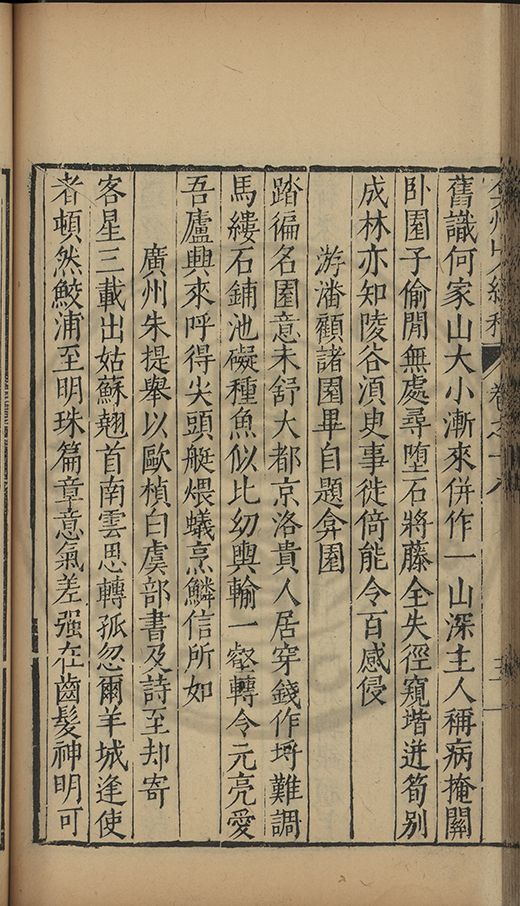 州山人續稿 卷之十八
舊識何家山大小漸來併作一山深主人稱病掩關
卧園子偷閒無處尋墮石將藤全失徑窺堦迸筍別
成林亦知陵谷須臾事徙倚能令百感侵
游潘顧諸園畢自題弇園
踏徧名園意未舒大都京洛貴人居穿錢作埒難調
馬縷石鋪池礙種魚似比幼輿輸一壑轉令元亮愛
吾廬興來呼得尖頭艇煨蟻烹鱗信所如
廣州朱提舉以歐楨白虞部書及詩至却寄
客星三載出姑蘇翹首南雲思轉孤忽爾羊城逢使
者頓然鮫浦至明珠篇章意氣差强在齒髮神明可